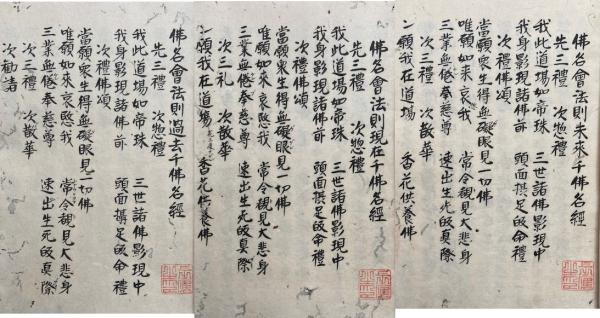 佛名會法則未來千佛名經
先三禮　次惣禮
我此道場如帝珠　三世諸佛影現中
我身影現諸佛前　頭面摂足皈命禮
次禮佛頌
當願衆生得無礙眼見一切佛
唯願如來哀愍我　常令覩見大悲身
三業無倦奉慈尊　速出生死皈真際
次三禮　次散華
願我在道場　香花供養佛
佛名會法則現在千佛名經
先三禮　次惣禮
我此道場如帝珠　三世諸佛影現中
我身影現諸佛前　頭面摂足皈命禮
次禮佛頌
當願衆生得無礙眼見一切佛
唯願如來哀愍我　常令覩見大悲身
三業無倦奉慈尊　速出生死皈真際
次三礼　次散華
願我在道場　香花供養佛
佛名會法則過去千佛名經
先三禮　次惣禮
我此道場如帝珠　三世諸佛影現中
我身影現諸佛前　頭面摂足皈命禮
次禮佛頌
當願衆生得無礙眼見一切佛
唯願如來哀愍我　常令覩見大悲身
三業無倦奉慈尊　速出生死皈真際
次三禮　次散華
次勧請